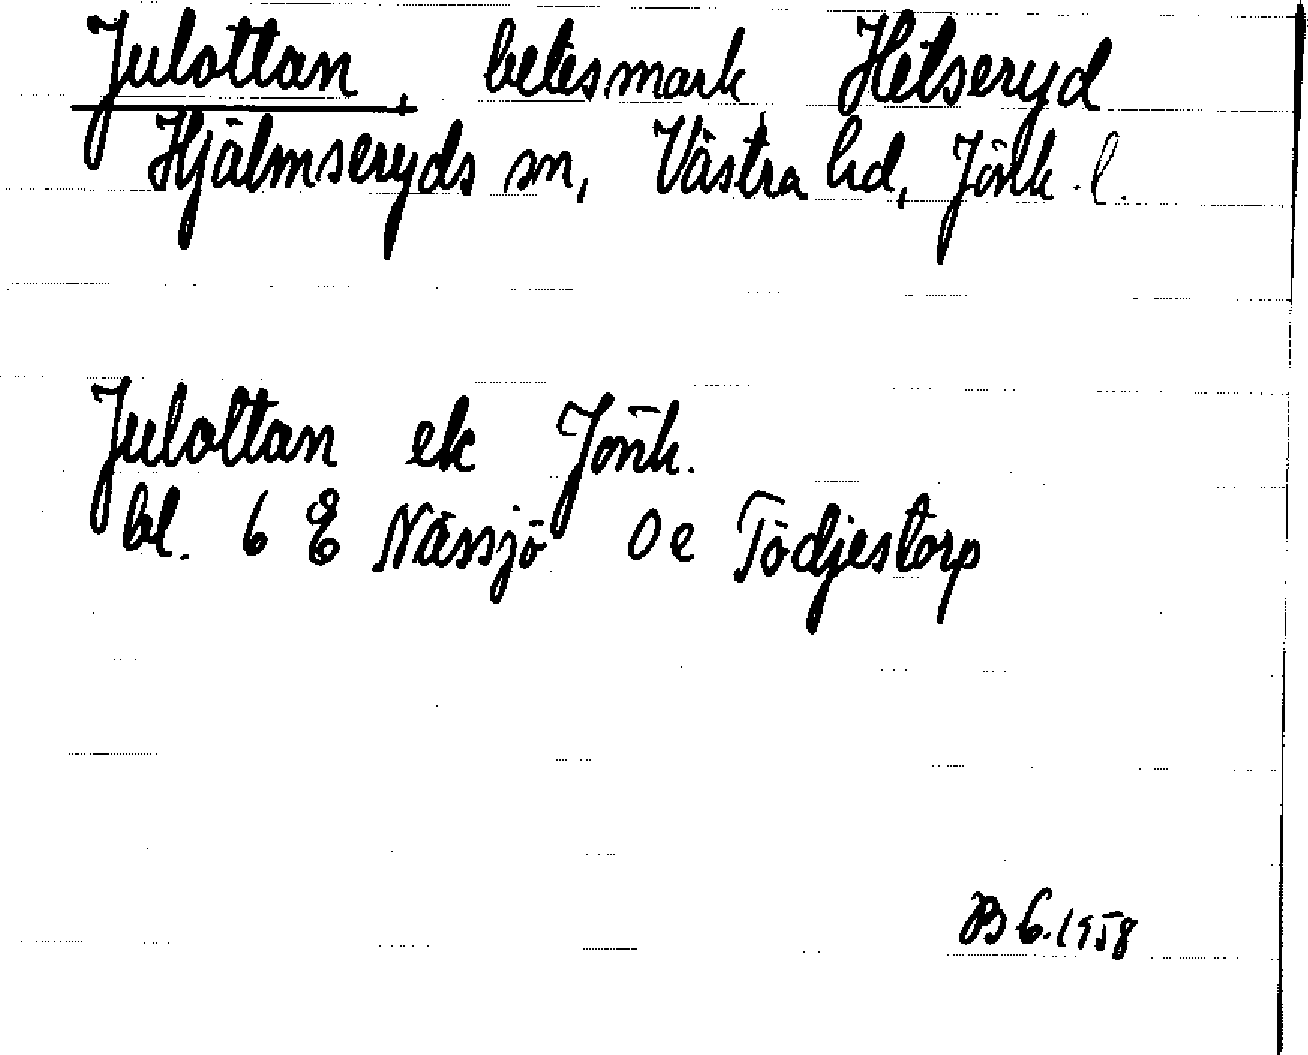 Julottan, betesmark Hetseryd
Hjälmseryds sn, Västra hd, Jönk. l.
Julottan ek Jönk.
bl. 6 E Nässjö 0 e Tödjestorp
B 6.1958